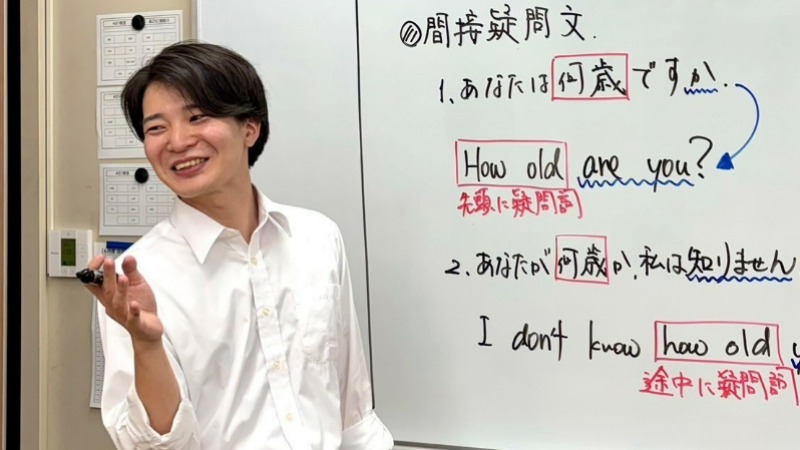 ◎間接疑問文.
1、あなたは何歳ですか.
How old are you?
先頭に疑問詞
2、あなたが何歳か、私は知りません
I don't know how old
途中に疑問詞